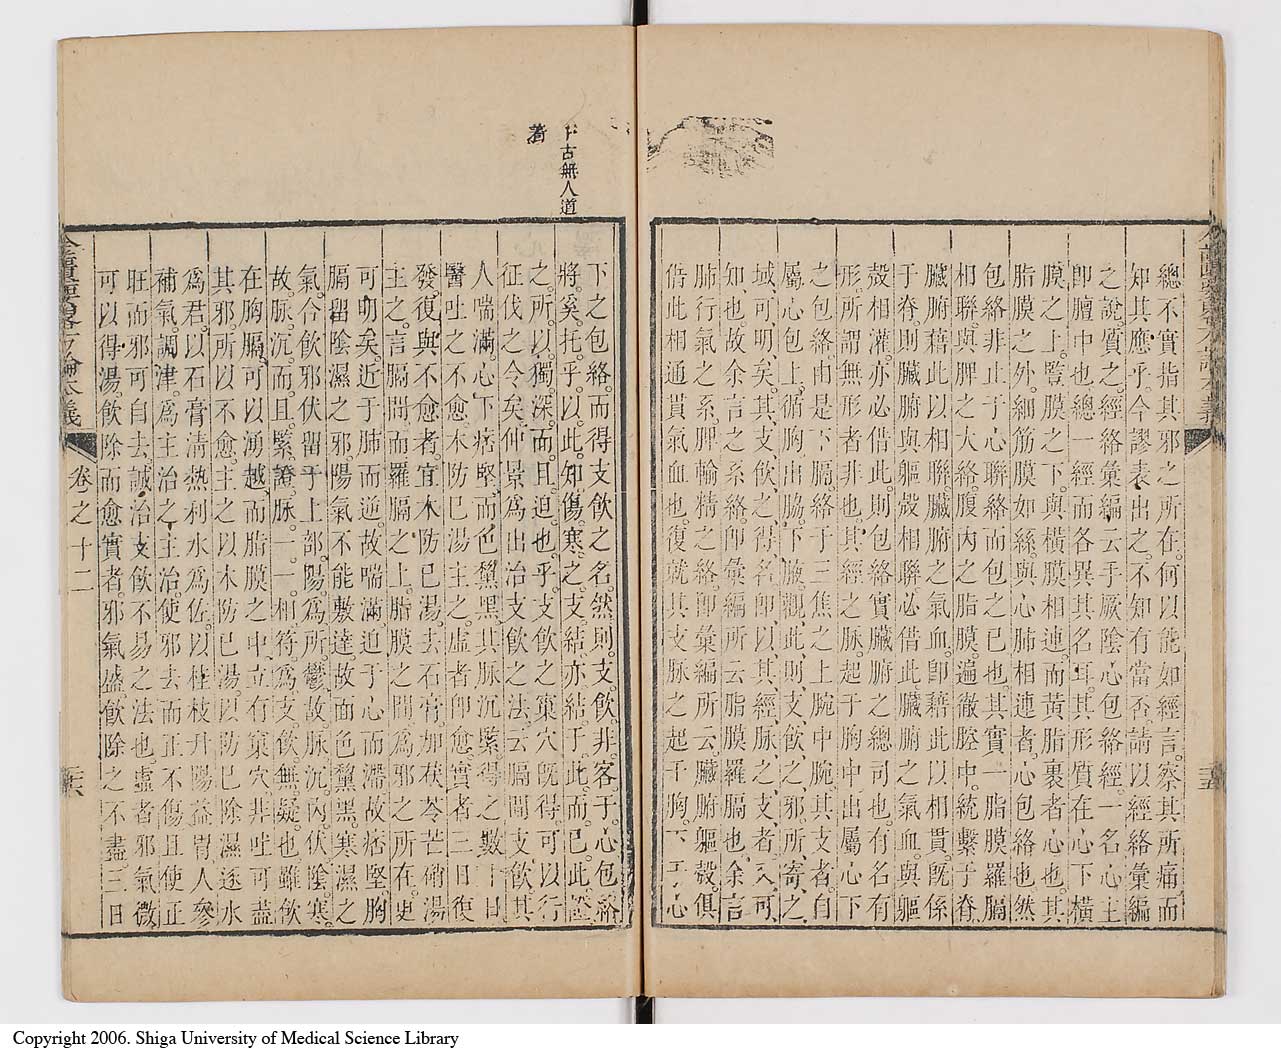 總不實指其邪之所在何以能如經言察其所痛而
知其應乎今謬表出之不知有當否請以經絡彙編
之說質之經絡彙編云手厥陰心包絡經一名心主
卽膻中也總一經而各異其名耳其形質在心下橫
膜之上豎膜之下與橫膜相連而黃脂裹者心也其
脂膜之外細筋膜如絲與心肺相連者心包絡也然
包絡非止于心聯絡而包之已也其實一脂膜羅膈
相聯與脾之大絡腹內之脂膜遍徹腔中統繫于脊
臟腑藉此以相聯臟腑之氣血卽藉此以相貫旣係
于脊則臟腑與軀殼相聯必借此臟腑之氣血與軀
殼相灌亦必借此則包絡實臟腑之總司也有名有
形所謂無形者非也其經之脉起于胸中出屬心下
之包絡由是下膈絡于三焦之上脘中脘其支者自
屬心包上循胸出脇下腋觀此則支飲之邪所寄之
域可明矣其支飲之得名卽以其經脉之支者入可
知也故余言之系絡卽彙編所云脂膜羅膈也余言
肺行氣之系脾輸精之絡卽彙編所云臟腑軀殼俱
借此相通貫氣血也復就其支脉之起于胸下于心
下之包絡而得支飲之名然則支飲非客于心包絡
將奚托乎以此知傷寒之支結亦結于此而已此證
之所以獨深而且迫也乎支飲之窠穴旣得可以行
征伐之令矣仲景爲出治支飲之法云膈間支飲其
人喘滿心下痞堅而色黧黑其脉沉緊得之數十日
醫吐之不愈木防巳湯主之虛者卽愈實者三日復
發復與不愈者宜木防巳湯去石膏加茯苓芒硝湯
主之言膈間而羅膈之上脂膜之間爲邪之所在更
可明矣近于肺而逆故喘滿迫于心而滯故痞堅胸
膈留陰濕之邪陽氣不能敷達故面色黧黑寒濕之
氣合飲邪伏留于上部陽爲所鬱故脉沉內伏陰寒
故脉沉而且緊證脉一一相符爲支飲無疑也雖飲
在胸膈可以湧越而脂膜之中立有窠穴非吐可盡
其邪所以不愈主之以木防巳湯以防巳除濕逐水
爲君以石膏淸熱利水爲佐以桂枝升陽益胃人參
補氣調津爲主治之主治使邪去而正不傷且使正
旺而邪可自去誠治支飲不易之法也虛者邪氣微
可以得湯飲除而愈實者邪氣盛飲除之不盡三日
千古無人道
著
金匱要畧方論本義
卷之十二
二十六